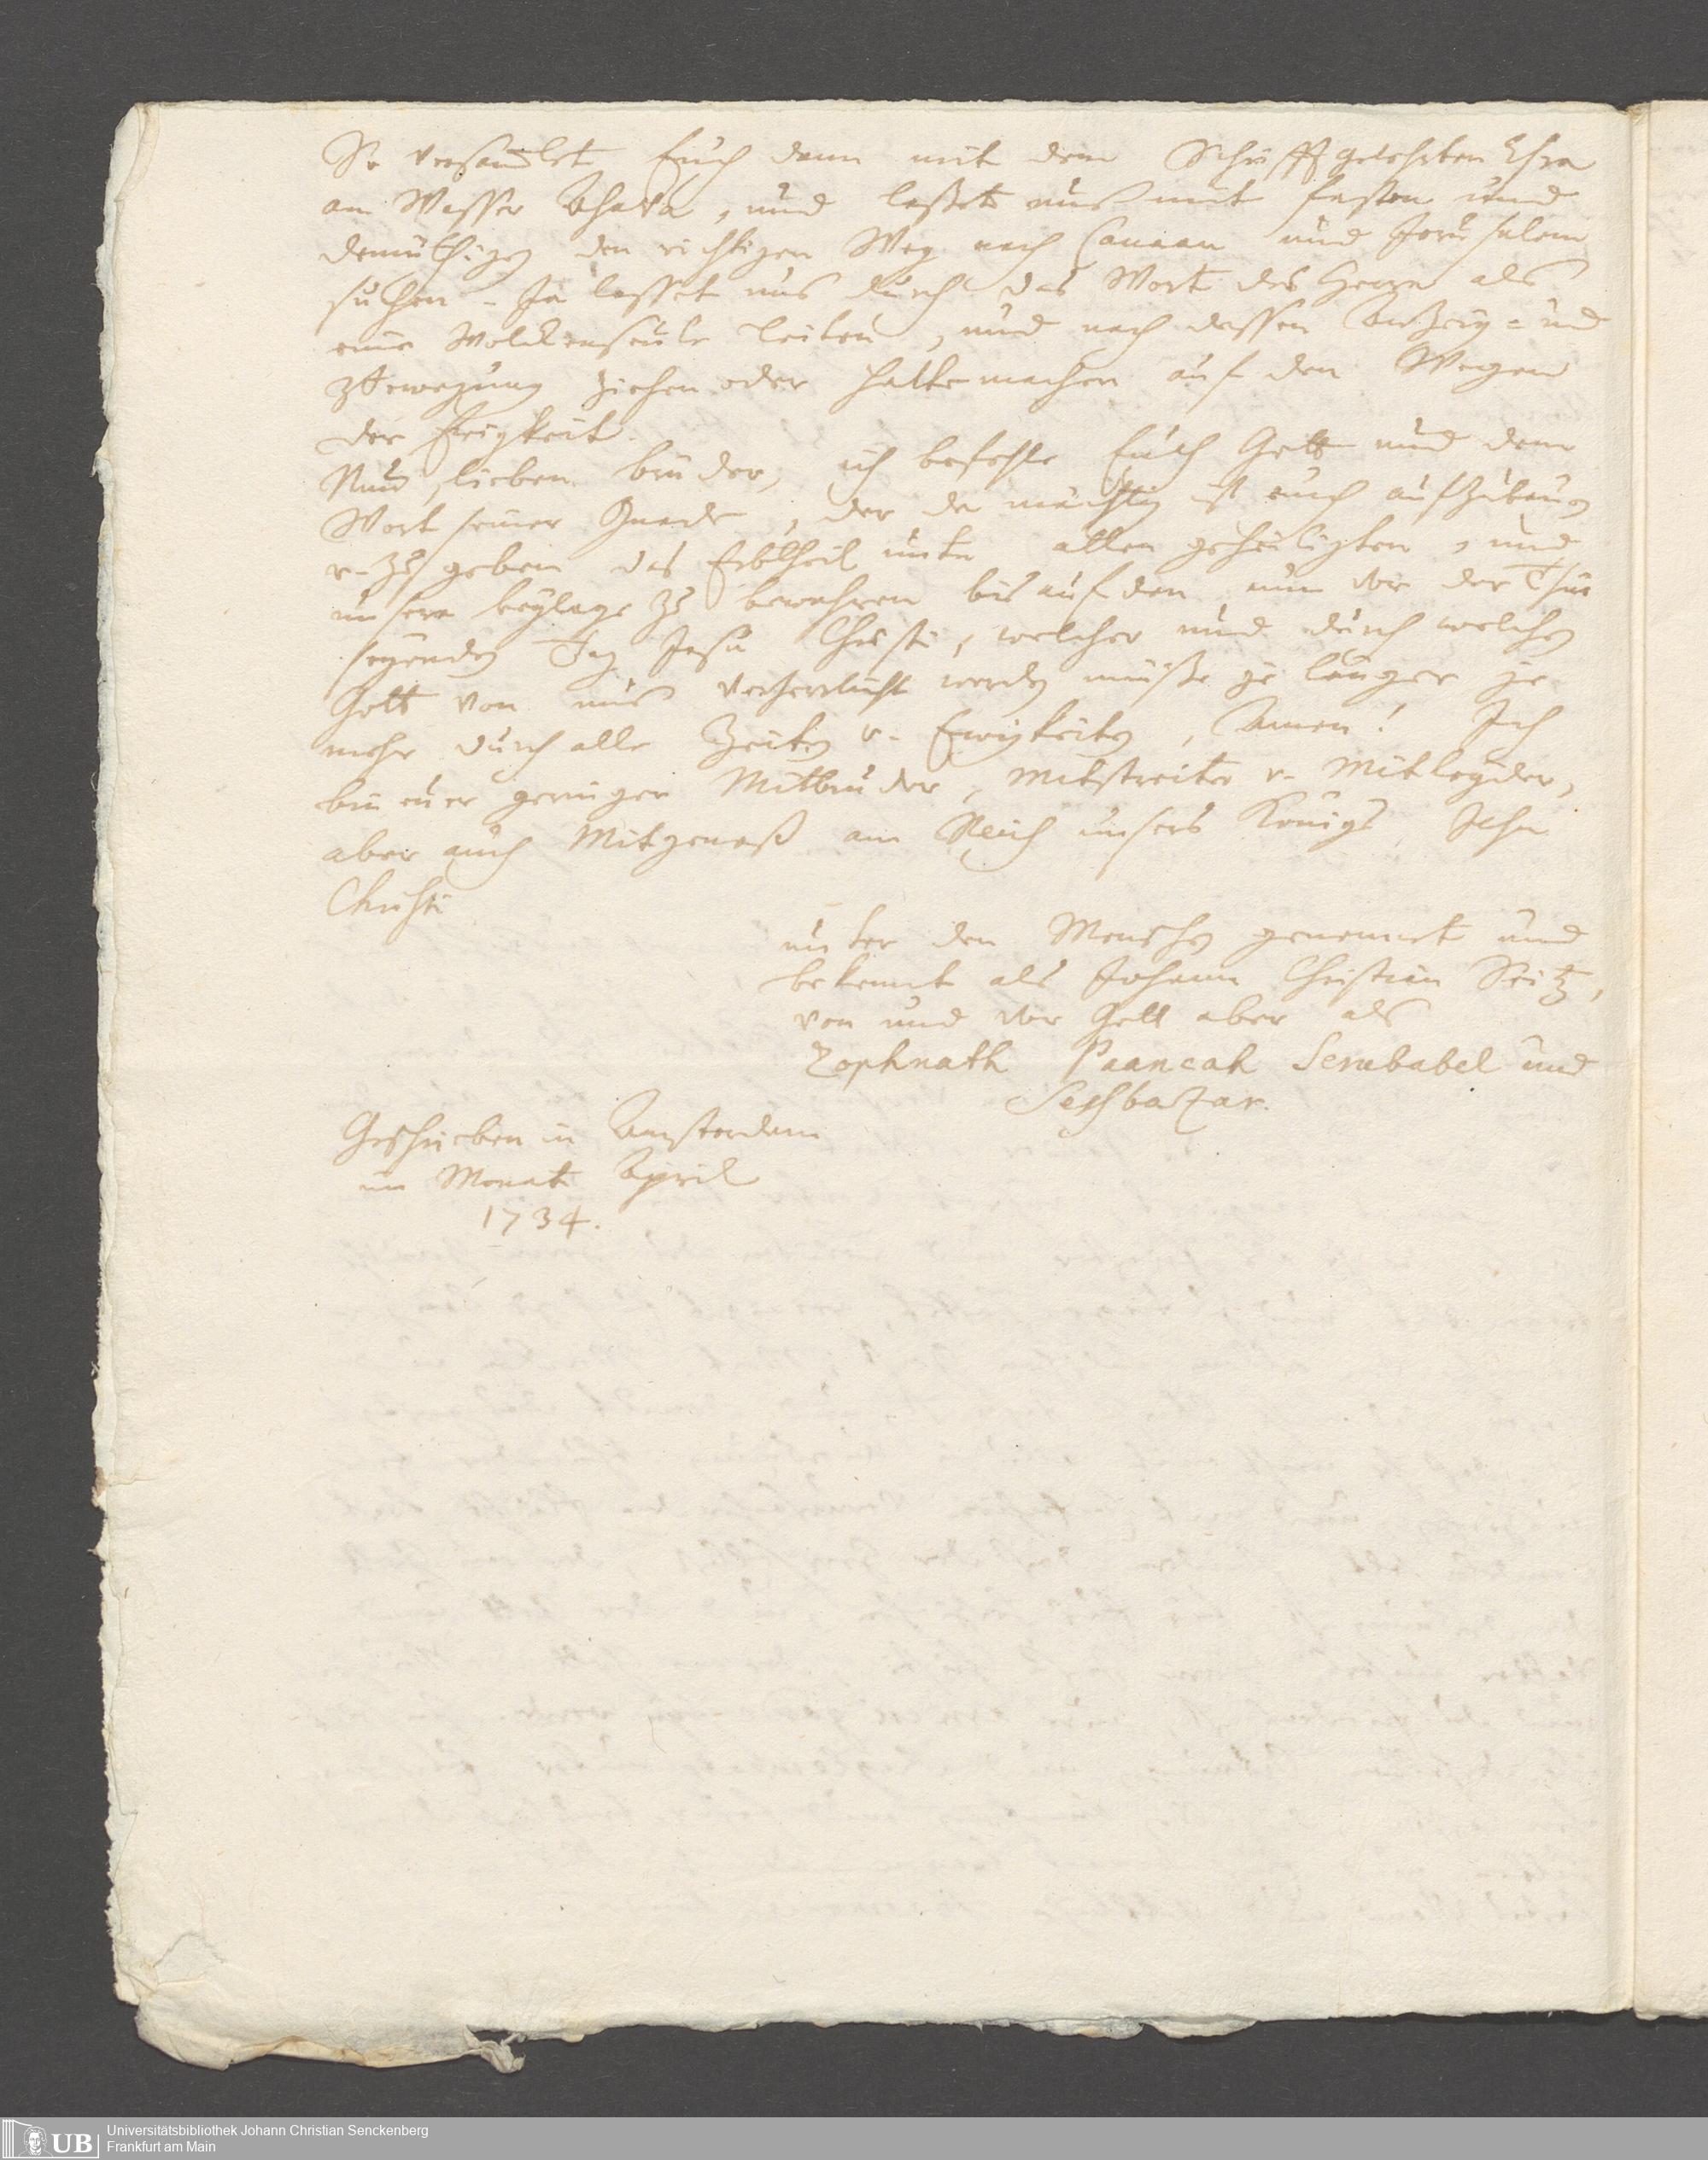 So versam̅let Euch dann mit dem Schrifftgelehrten Esra
am Wasser Ahava, und lasset uns mit fasten und
demüthigen den richtigen Weg nach Canaan und Jerusalem
suchen. Ja lasset uns durch das Wort des Herrn als
eine Wolckenseule leiten, und nach dessen Anzeig= und
Bewegung ziehen oder halte machen auf den Wegen
der Ewigkeit.
Nun, lieben brüder, ich befehle Euch Gott und dem
Wort seiner Gnade, der da mächtig ist euch aufzubauen
u. zu geben das Erbtheil unter allen geheiligten, und
unsere beylage zu bewahren bis auf den nun vor der Thür
seyenden Tag Jesu Christi, welcher und durch welchen
Gott von uns verherrlicht werden müsse je länger je
mehr durch alle Zeiten u. Ewigkeiten, Amen! Ich
bin euer geringer Mitbruder, Mitstreiter u. Mitleyder,
aber auch Mitgenoß am Reich unsers Königs Jesu
Christi
unter den Menschen genennet und
bekennt als Johann Christian Seitz,
von und vor Gott aber als
Zophnath Paaneah Serubabel und
Seschbazar.
Geschrieben in Amsterdam
im Monat April
1734.
UB Universitätsbibliothek Johann Christian Senckenberg
Frankfurt am Main